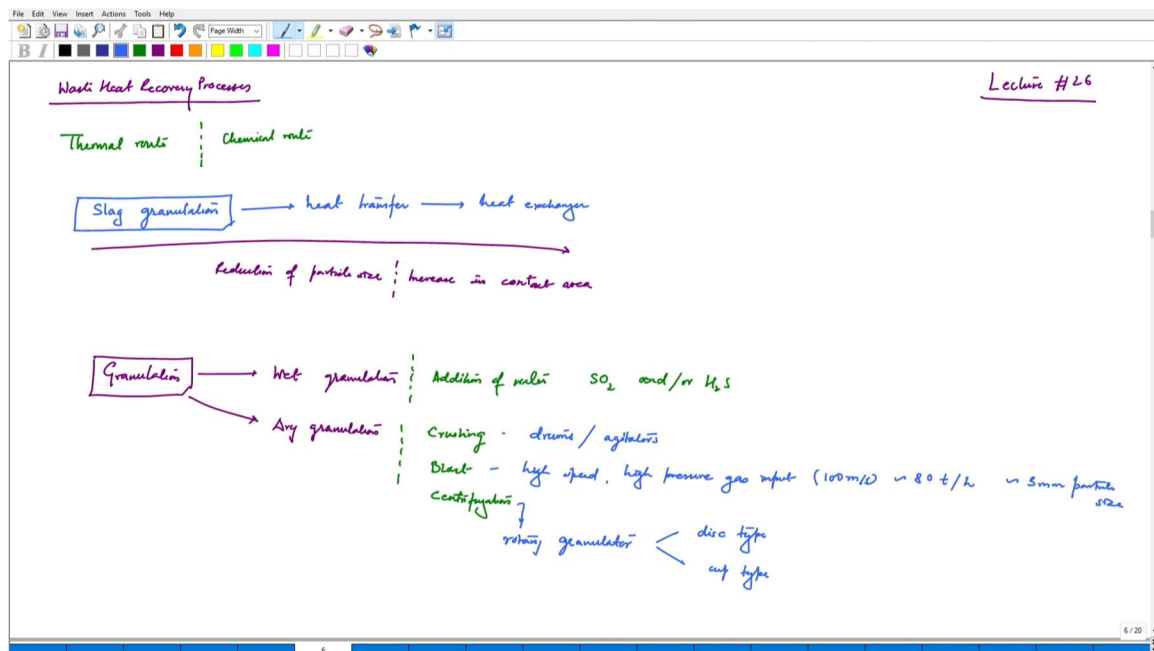 File Edit View Insert Actions Tools Help
Page Width
B I
Waste Heat Recovery Processes
Lecture #26
Thermal route
Chemical route
Slag granulation → heat transfer → heat exchanger
Reduction of particle size
Increase in contact area
Granulation → Wet granulation
Addition of water SO2 and/or H2S
Dry granulation
Crushing - drums / agitators
Blast - high speed, high pressure gas input (100 m/s) ~ 80 t/h ~ 3mm particle
size
Centrifugation
rotary granulator
disc type
cup type
6 / 20
6